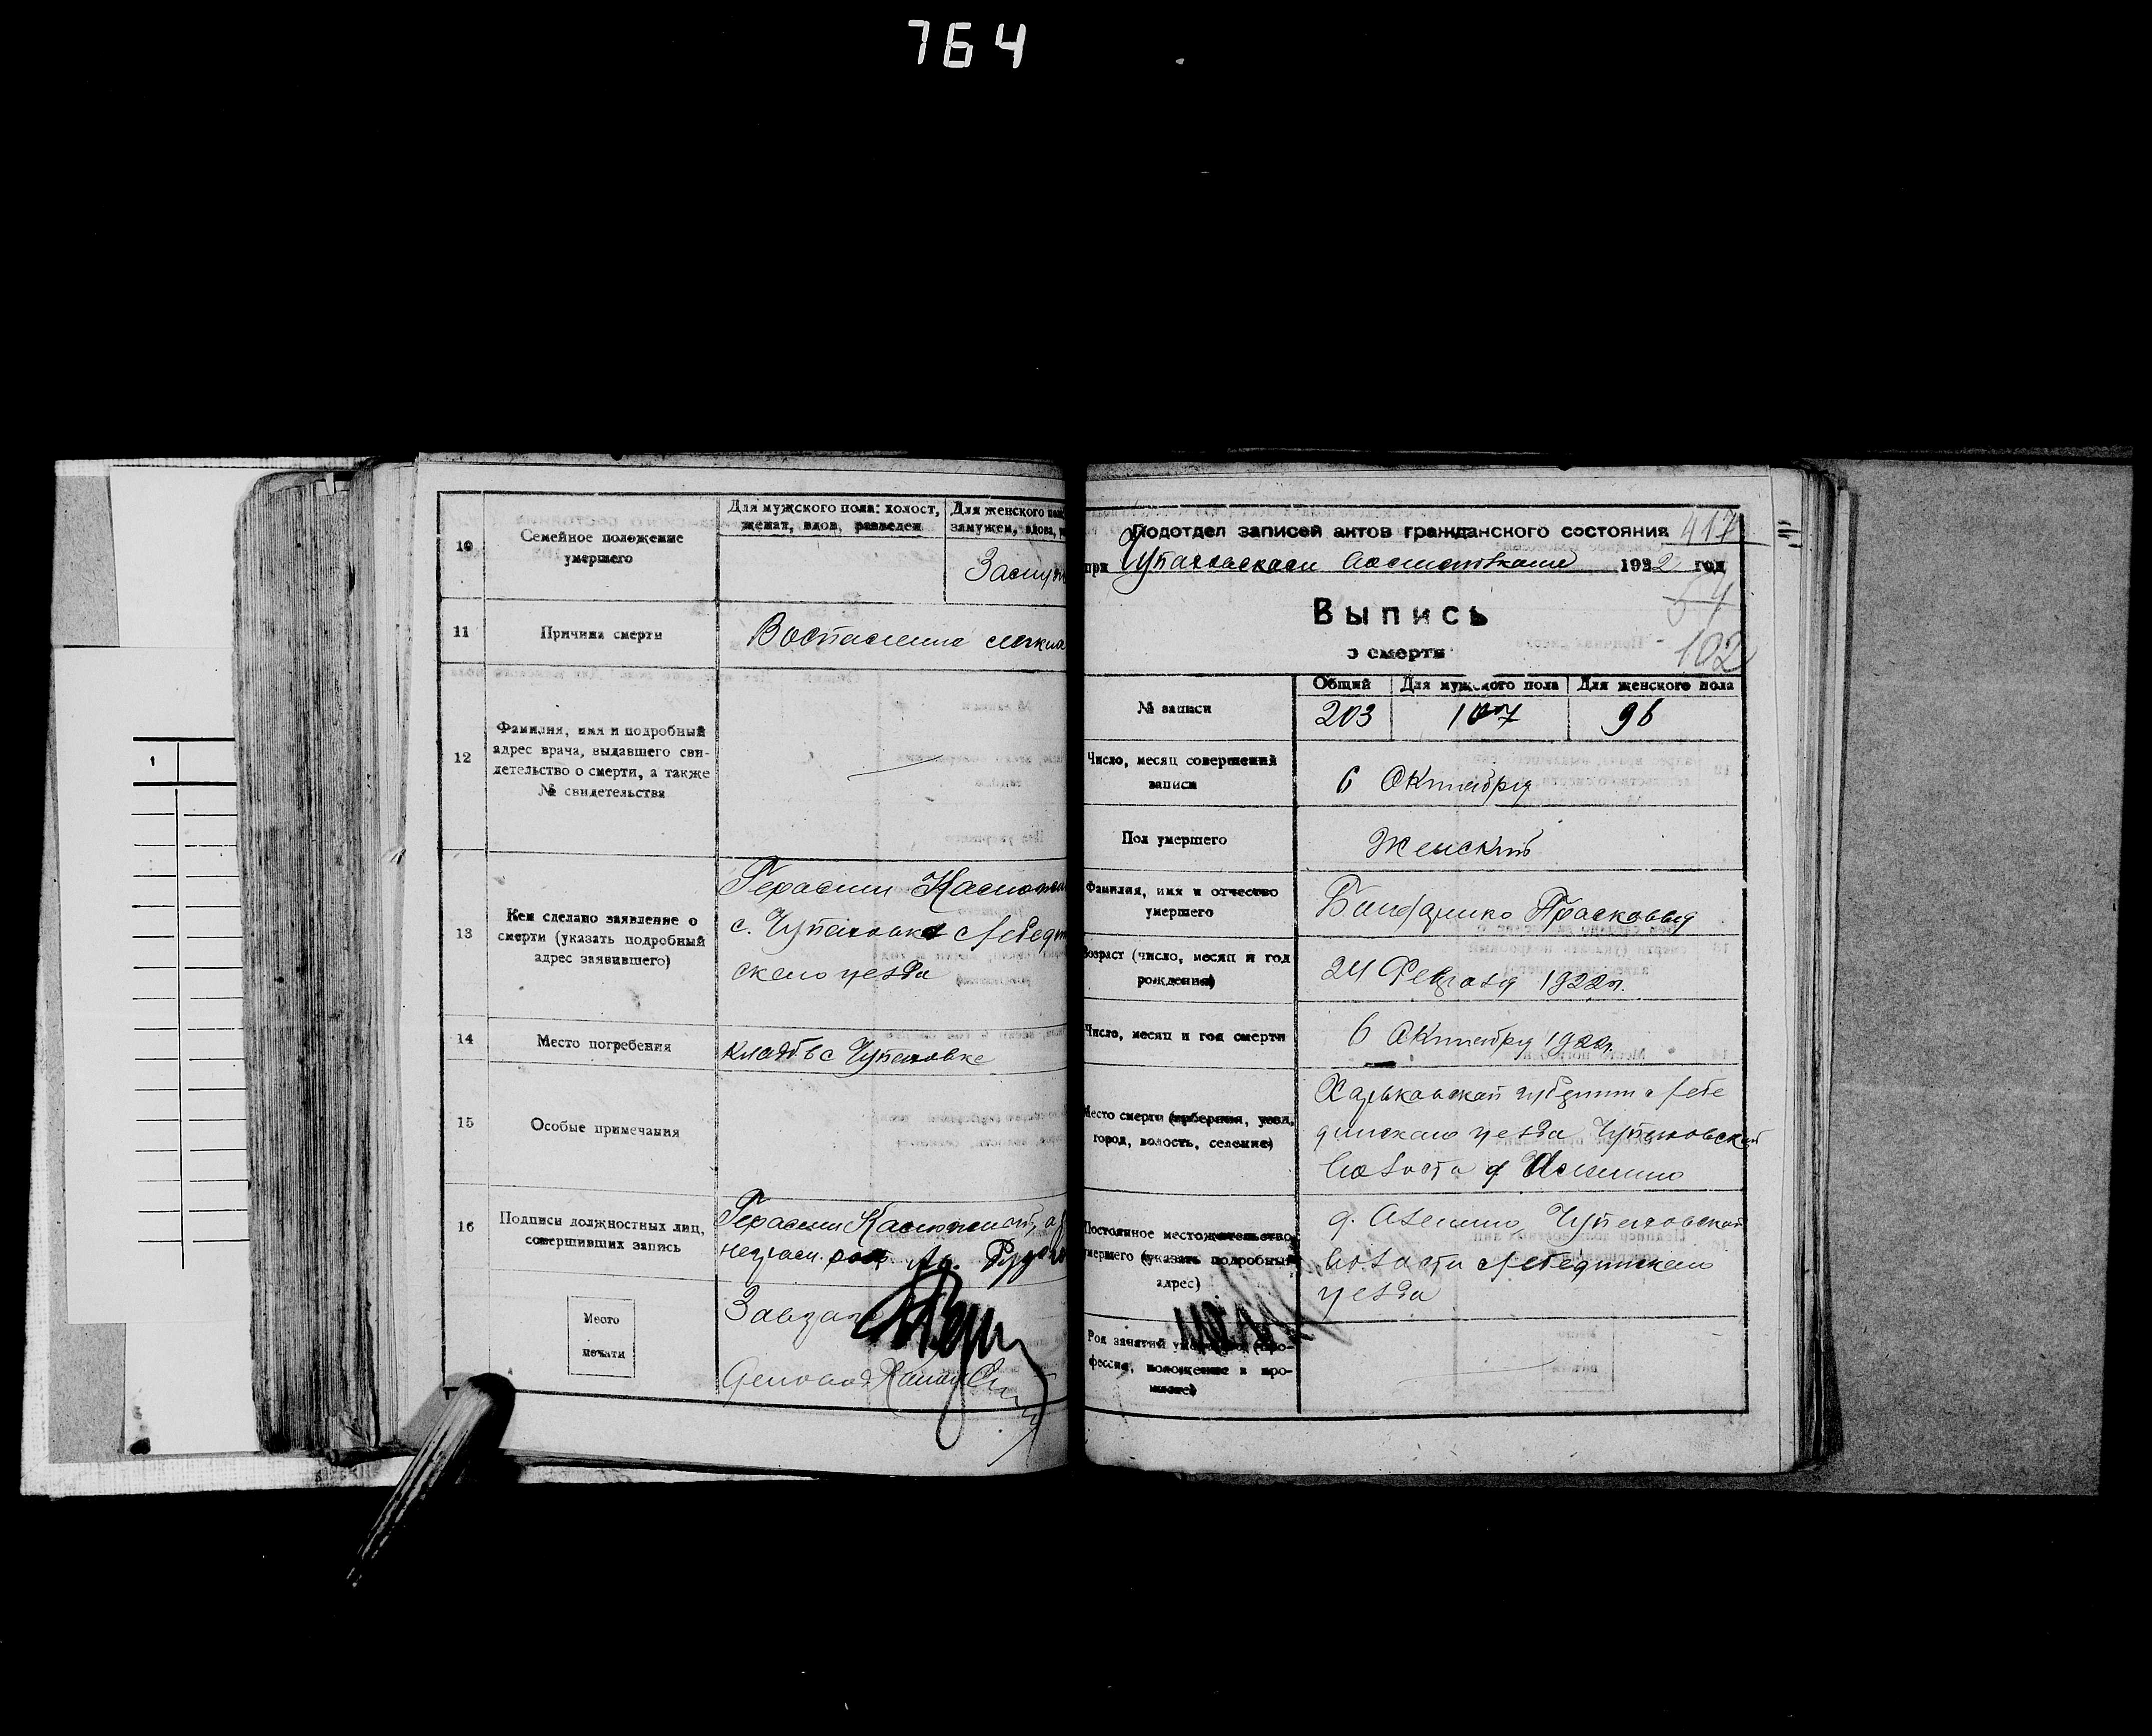 764
10
Семейное положение
умершего
Для мужского пола: холост,
женат, вдов, разведен
Для женского пола
замужем, вдова,
11
Причина смерти
Воспаление
12
Фамилия, имя и подробный
адрес врача, выдавшего сви-
детельство о смерти, а также
№ свидетельства
13
Кем сделано заявление о
смерти (указать подробный
адрес заявившего)
Герасим
с. Чупаховка
ского уезда
14
Место погребения
кладб в с Чупаховке
15
Особые примечания
16
Подписи должностных лиц,
совершивших запись
Герасим
Место
печати
Завзаг
1
Подотдел записей актов гражданского состояния
417
при Чупаховском 1922 год
Выпись
о смерти
102
№ записи
Общий
Для мужского пола
Для женского пола
203
107
96
Число, месяц совершений
записи
6 Октября
Пол умершего
Женский
Фамилия, имя и отчество
умершего
Прасковья
Возраст (число, месяц и год
рождения)
24 Февраля 1922г.
Число, месяц и год смерти
6 Октября 1922г.
Место смерти (губерния, уезд,
город, волость, селение)
Харьковской губернии Лебе
динского уезда Чупаховской
волости д
Постоянное местожительство
умершего (указать подробный
адрес)
д. Чупаховской
волости Лебединского
уезда
Род занятий умершего (про-
фессия, положение в про-
мысле)